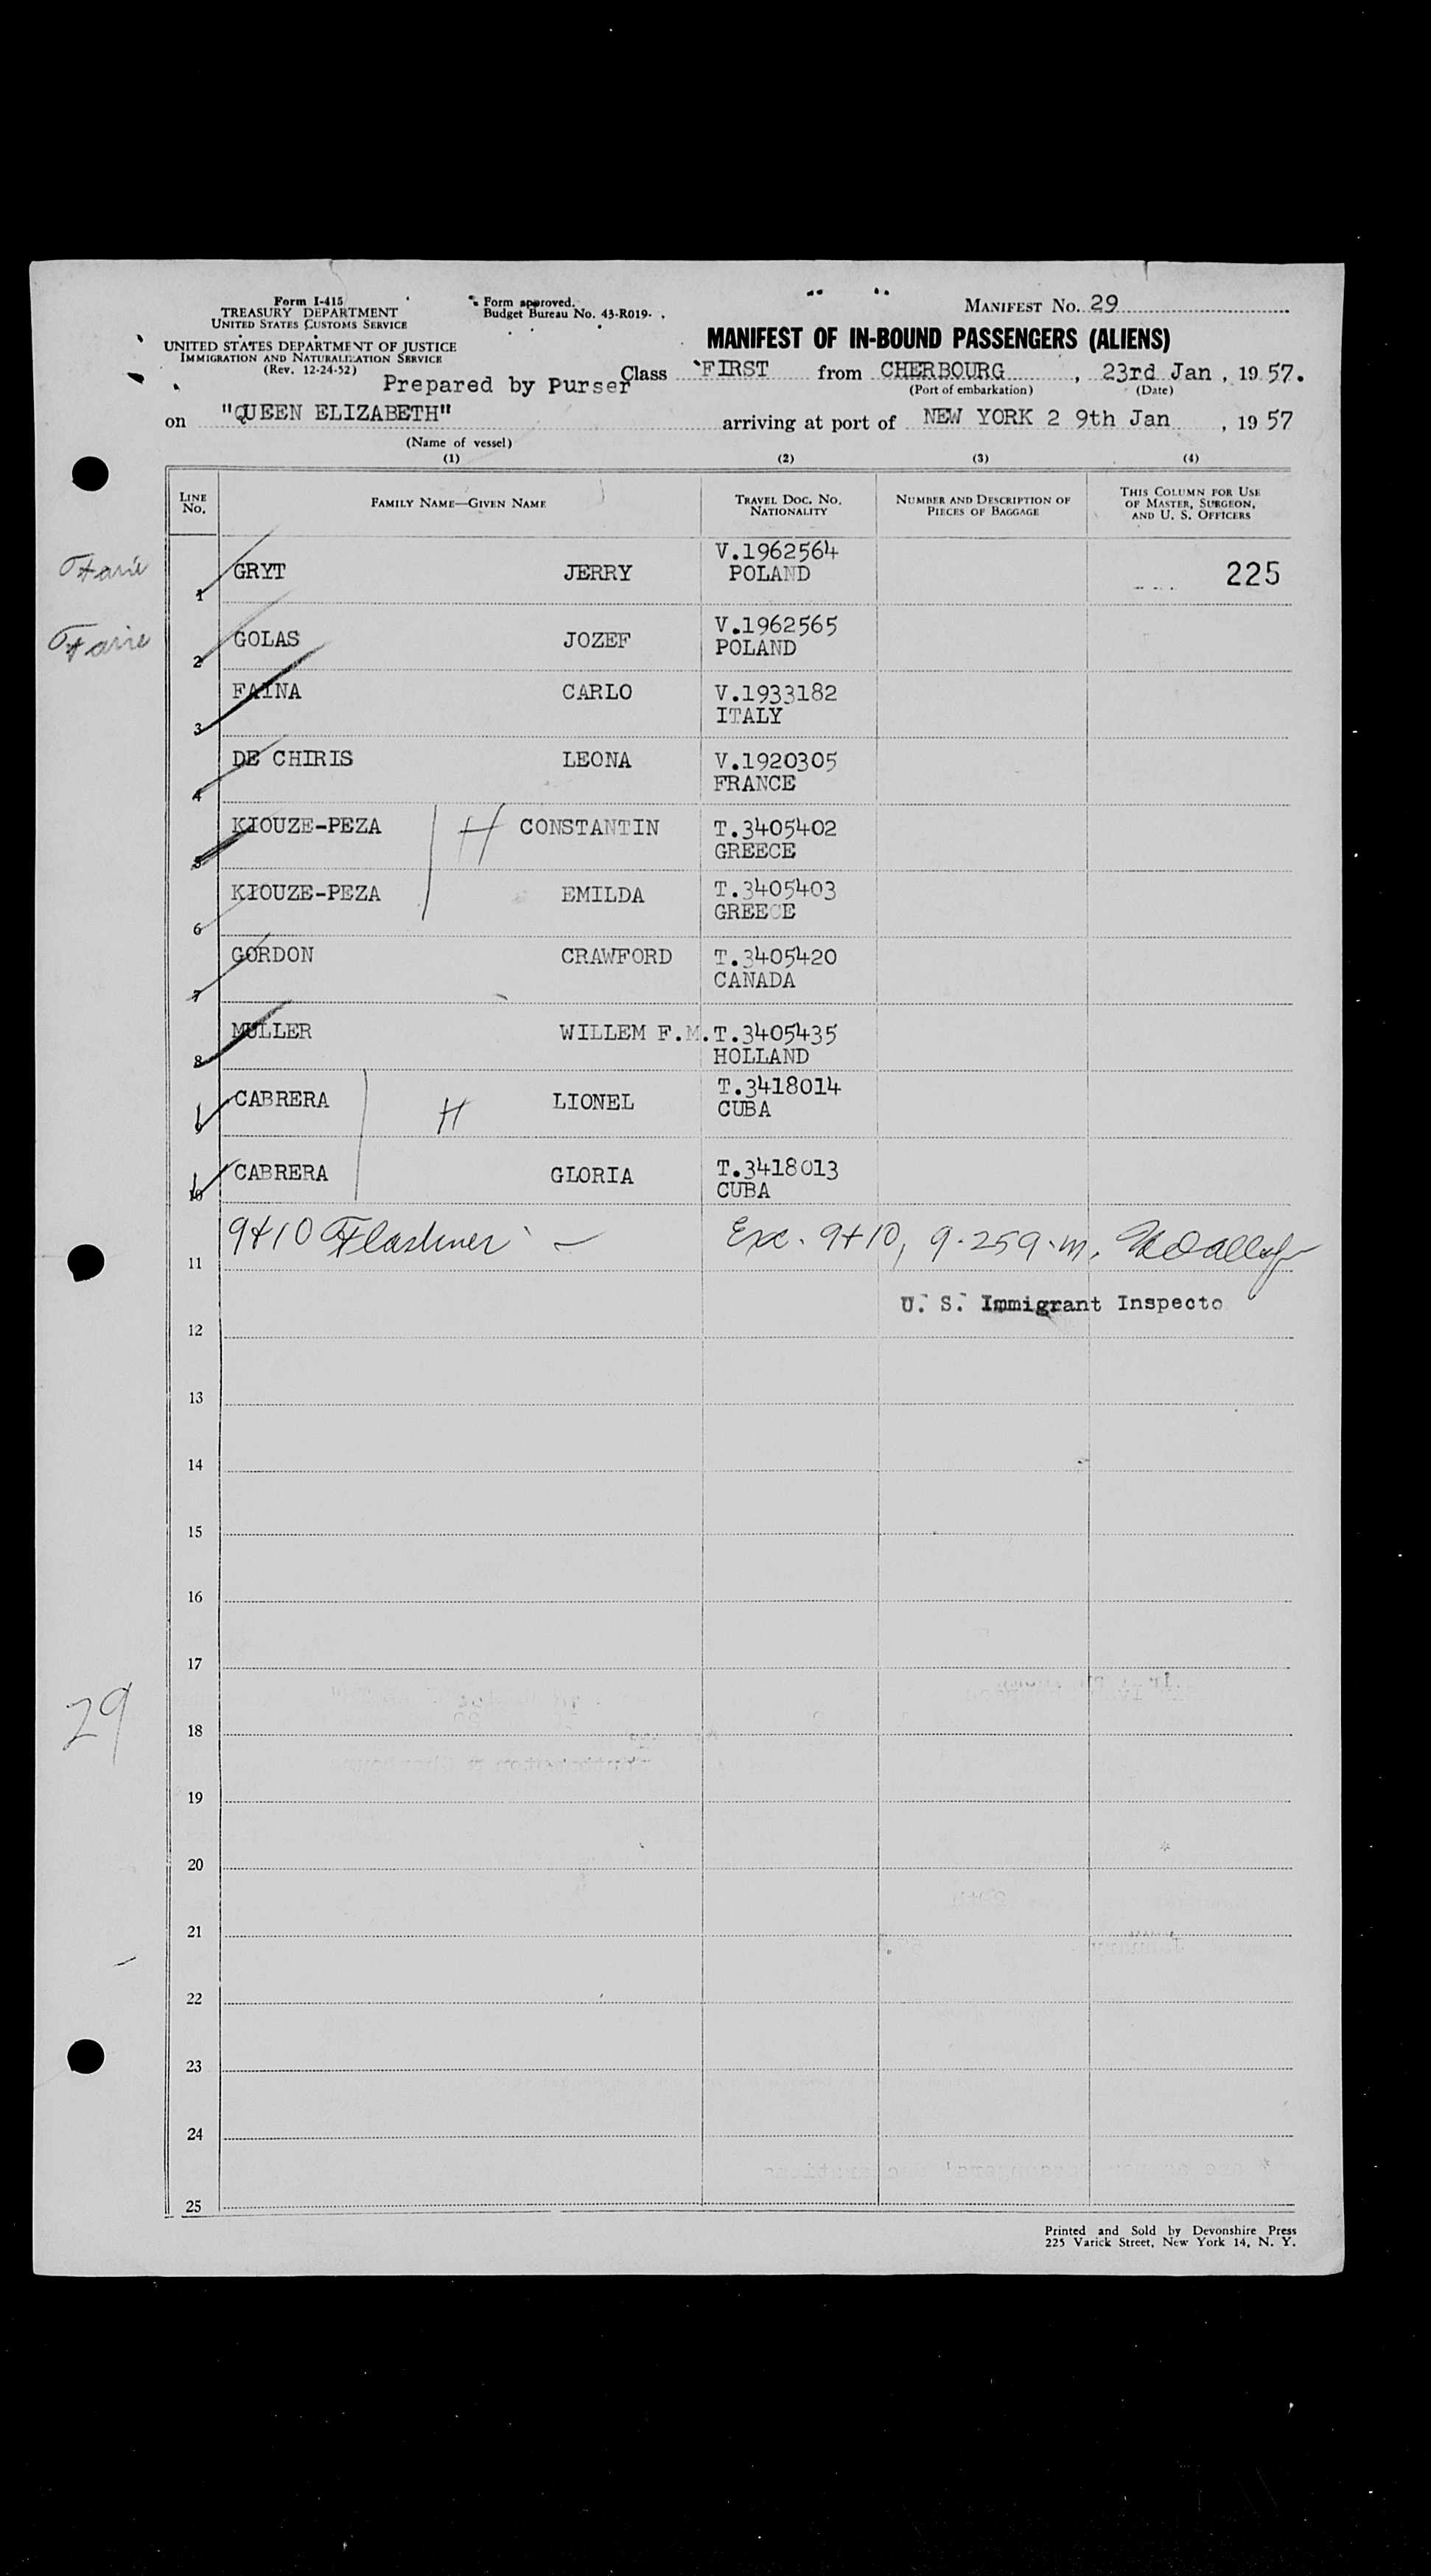 Form I-415
TREASURY DEPARTMENT
UNITED STATES CUSTOMS SERVICE
UNITED STATES DEPARTMENT OF JUSTICE
IMMIGRATION AND NATURALIZATION SERVICE
(Rev. 12-24-52)
Form approved.
Budget Bureau No. 43-R019-
MANIFEST NO. 29
MANIFEST OF IN-BOUND PASSENGERS (ALIENS)
Prepared by Purser
Class FIRST from CHERBOURG, 23rd Jan, 19 57.
(Port of embarkation) (Date)
on "QUEEN ELIZABETH" arriving at port of NEW YORK 2 9th Jan, 19 57
(Name of vessel)
(1) (2) (3) (4)
LINE NO. FAMILY NAME—GIVEN NAME TRAVEL DOC. NO. NATIONALITY NUMBER AND DESCRIPTION OF PIECES OF BAGGAGE THIS COLUMN FOR USE OF MASTER, SURGEON, AND U. S. OFFICERS
1 GRYT JERRY V.1962564 POLAND 225
2 GOLAS JOZEF V.1962565 POLAND
3 FAINA CARLO V.1933182 ITALY
4 DE CHIRIS LEONA V.1920305 FRANCE
5 KIOUZE-PEZA H CONSTANTIN T.3405402 GREECE
6 KIOUZE-PEZA EMILDA T.3405403 GREECE
7 GORDON CRAWFORD T.3405420 CANADA
8 MULLER WILLEM F.M. T.3405435 HOLLAND
9 CABRERA H LIONEL T.3418014 CUBA
10 CABRERA GLORIA T.3418013 CUBA
9+10 Exc. 9+10, 9.25 a.m.
11
U. S. Immigrant Inspecto
12
13
14
15
16
17
29
18
19
20
21
22
23
24
25
Printed and Sold by Devonshire Press
225 Varick Street, New York 14, N. Y.